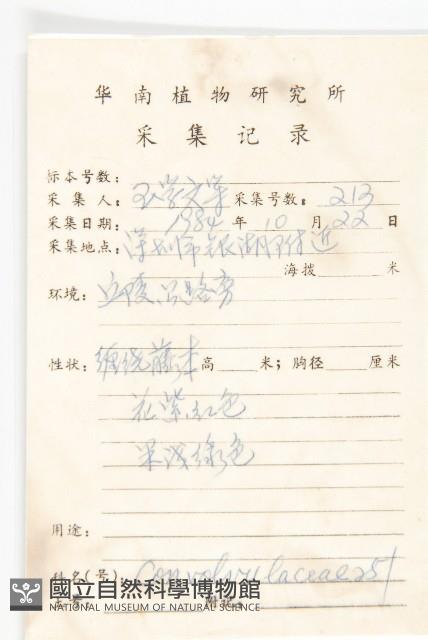 华南植物研究所
采集记录
标本号数:
采集人: 王学文等 采集号数: 213
采集日期: 1984 年 10 月 22 日
采集地点: 深圳市银湖附近
海拨 米
环境: 丘陵 路旁
性状: 缠绕藤本 高 米; 胸径 厘米
花紫红色
果浅绿色
用途:
姓名(号): Convolvulaceae 251
國立自然科學博物館
NATIONAL MUSEUM OF NATURAL SCIENCE